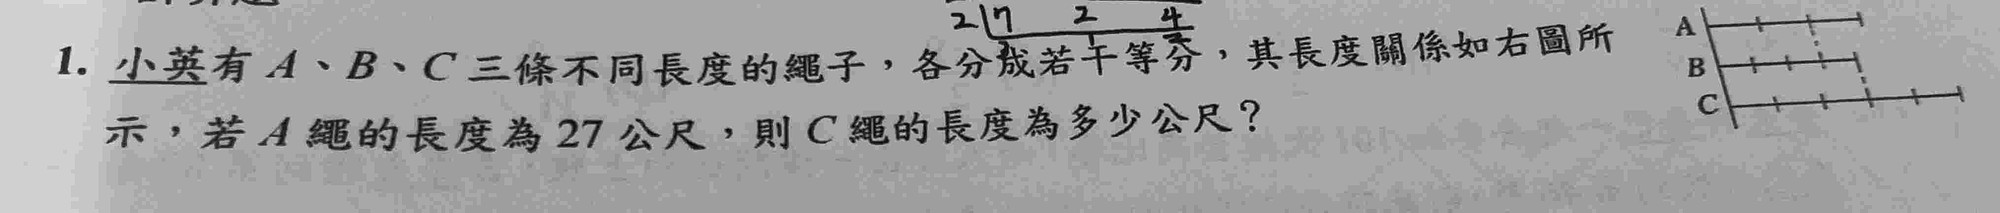 2 7 2 4
A
1. 小英有 A、B、C 三條不同長度的繩子，各分成若干等分，其長度關係如右圖所
B
示，若 A 繩的長度為 27 公尺，則 C 繩的長度為多少公尺？
C